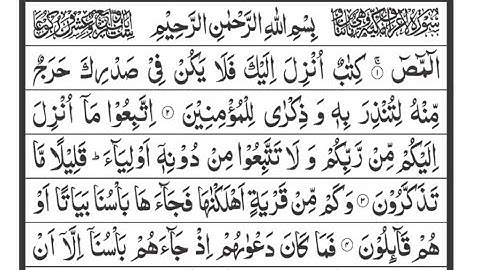 بِسْمِ اللّٰهِ الرَّحْمٰنِ الرَّحِيْمِ
الٓمّٓصٓ ۚ‏﴿۱﴾ كِتٰبٌ اُنْزِلَ اِلَيْكَ فَلَا يَكُنْ فِىْ صَدْرِكَ حَرَجٌ
مِّنْهُ لِتُنْذِرَ بِهٖ وَ ذِكْرٰى لِلْمُؤْمِنِيْنَ ﴿۲﴾ اِتَّبِعُوْا مَاۤ اُنْزِلَ
اِلَيْكُمْ مِّنْ رَّبِّكُمْ وَ لَا تَتَّبِعُوْا مِنْ دُوْنِهٖۤ اَوْلِيَآءَ ؕ قَلِيْلًا مَّا
تَذَكَّرُوْنَ ﴿۳﴾ وَكَمْ مِّنْ قَرْيَةٍ اَهْلَكْنٰهَا فَجَآءَ هَا بَاْسُنَا بَيَاتًا اَوْ
هُمْ قَآئِلُوْنَ ﴿۴﴾ فَمَا كَانَ دَعْوٰىهُمْ اِذْ جَآءَهُمْ بَاْسُنَاۤ اِلَّاۤ اَنْ